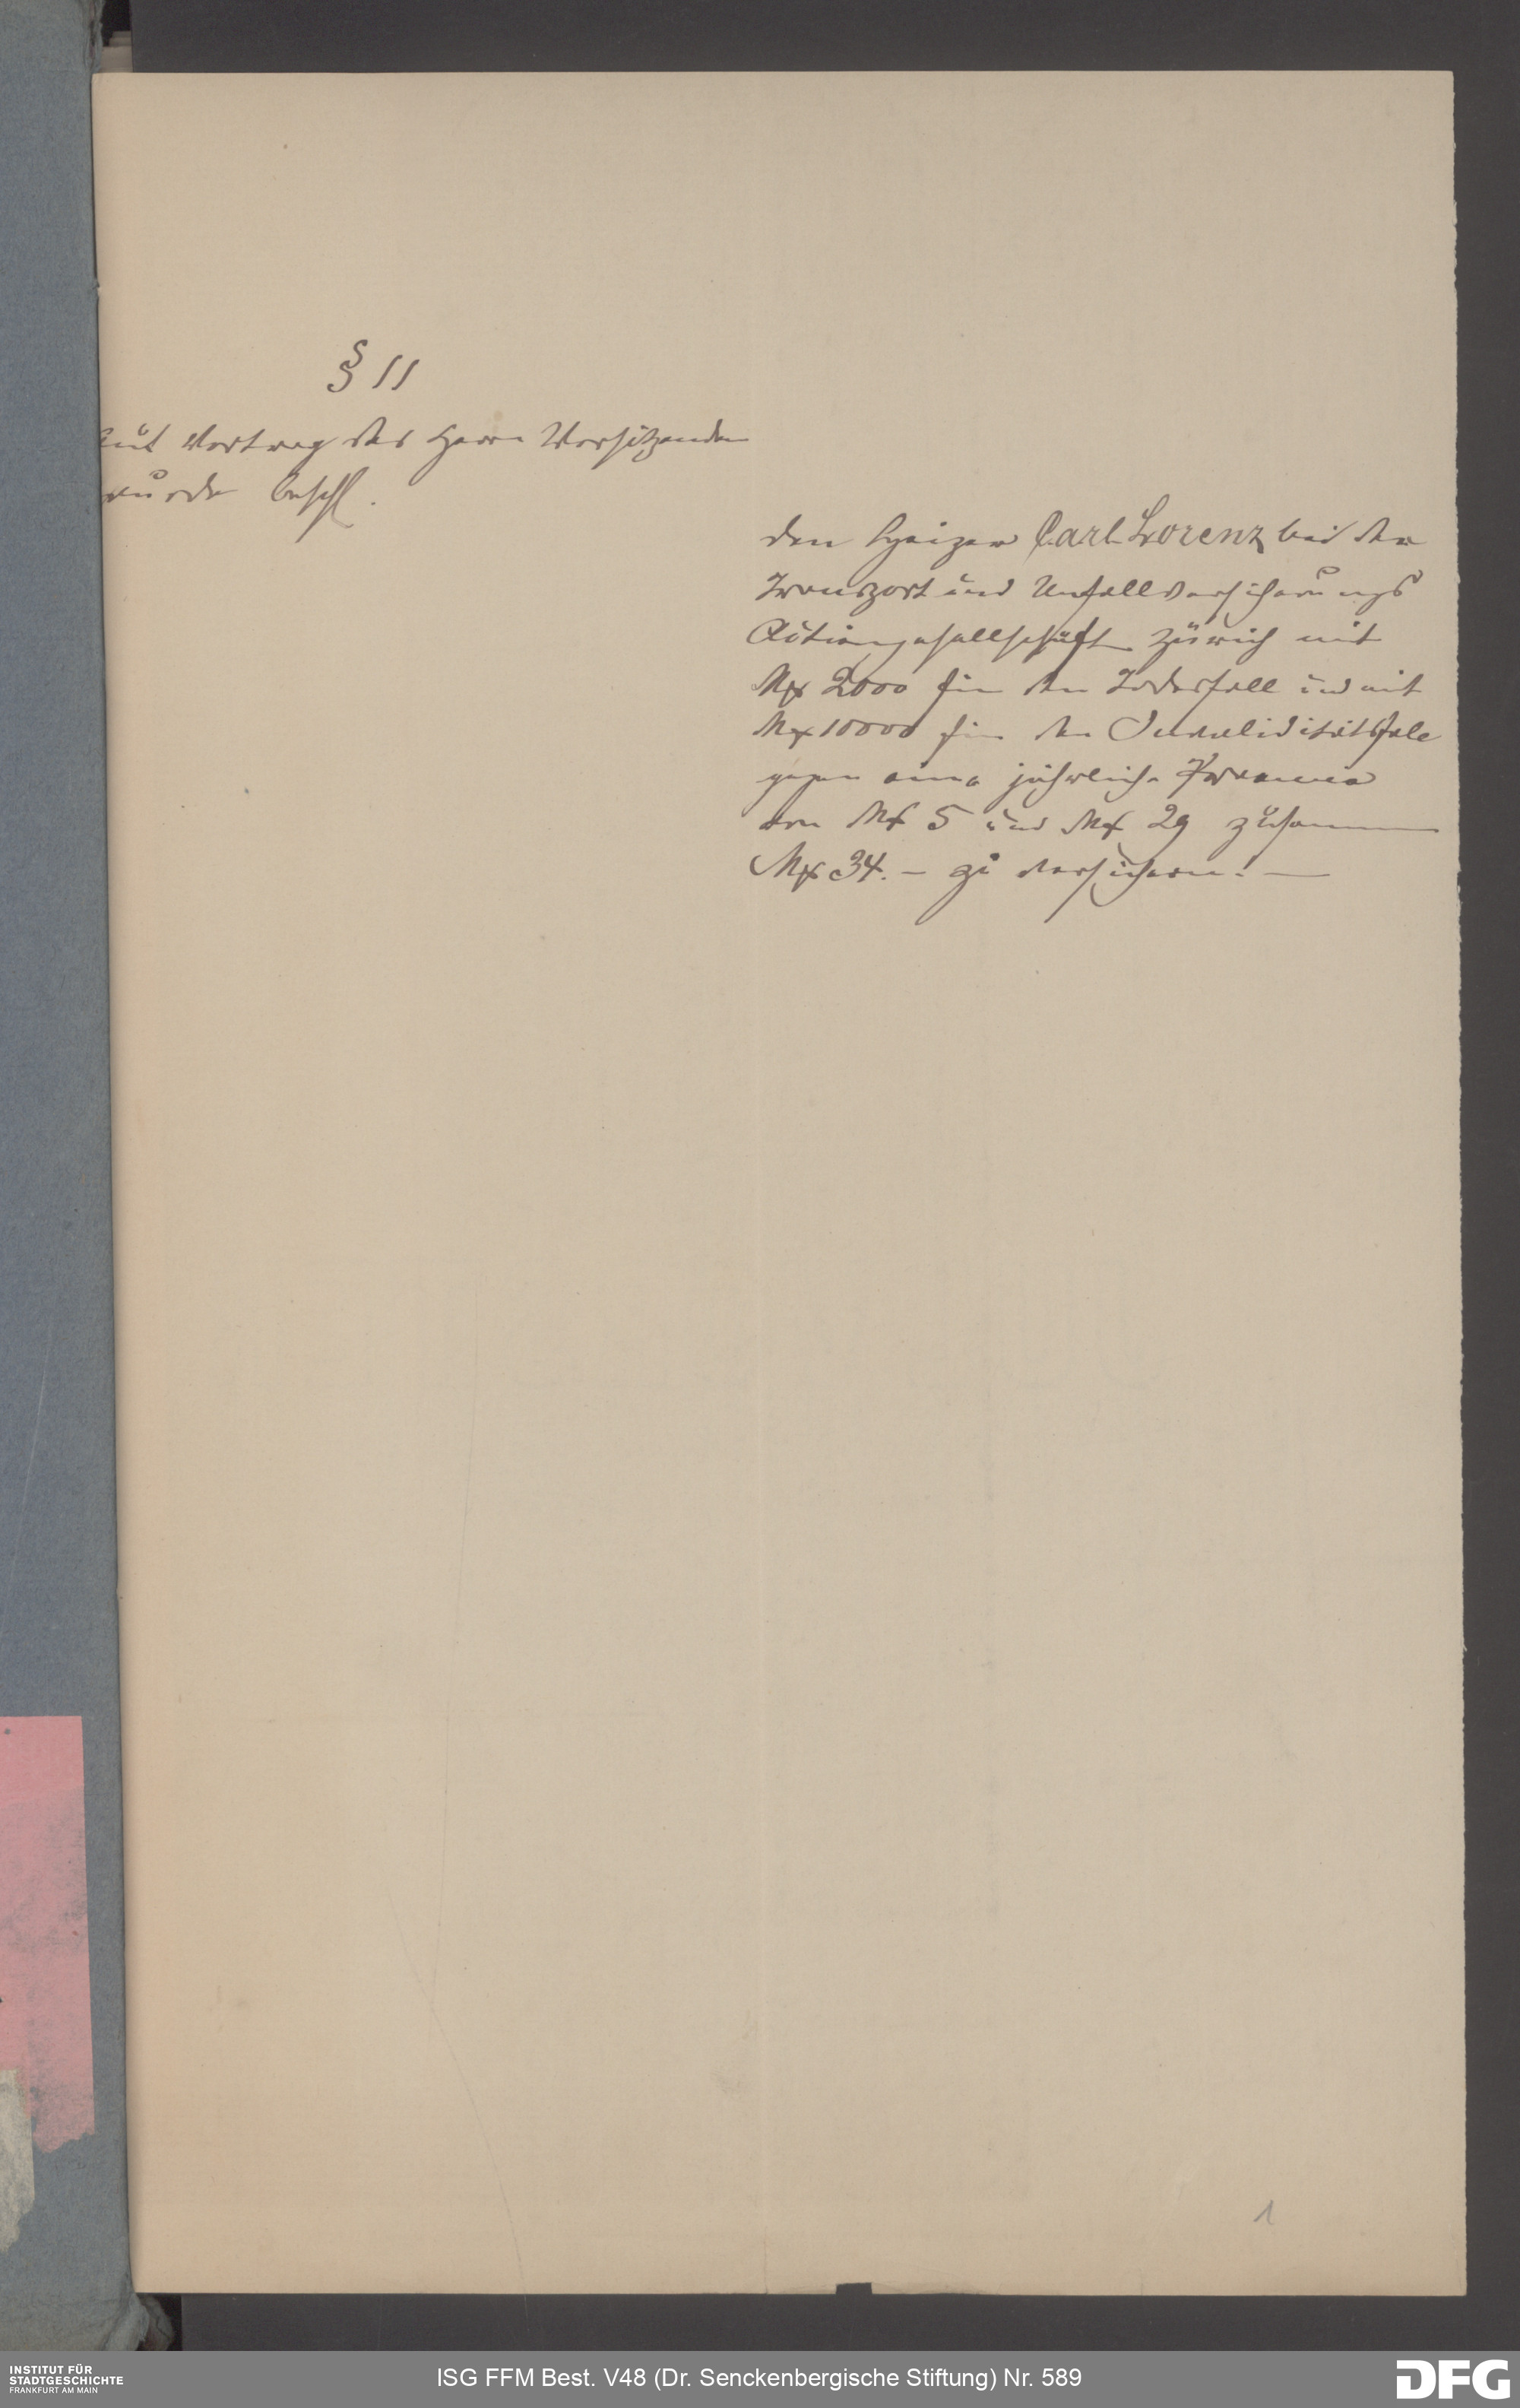 § 11
Auf Vortrag des Herrn Vorsitzenden
wurde beschl.
den Heizer Carl Lorenz bei der
Transport und Unfallversicherungs
Actiengesellschaft Zürich mit
Mk 2000 für den Todesfall und mit
Mk 10000 für den Invaliditätsfall
gegen eine jährliche Praemie
von Mk 5 und Mk 29 zusammen
Mk 34.— zu versichern. —
1
INSTITUT FÜR
STADTGESCHICHTE
FRANKFURT AM MAIN
ISG FFM Best. V48 (Dr. Senckenbergische Stiftung) Nr. 589
DFG